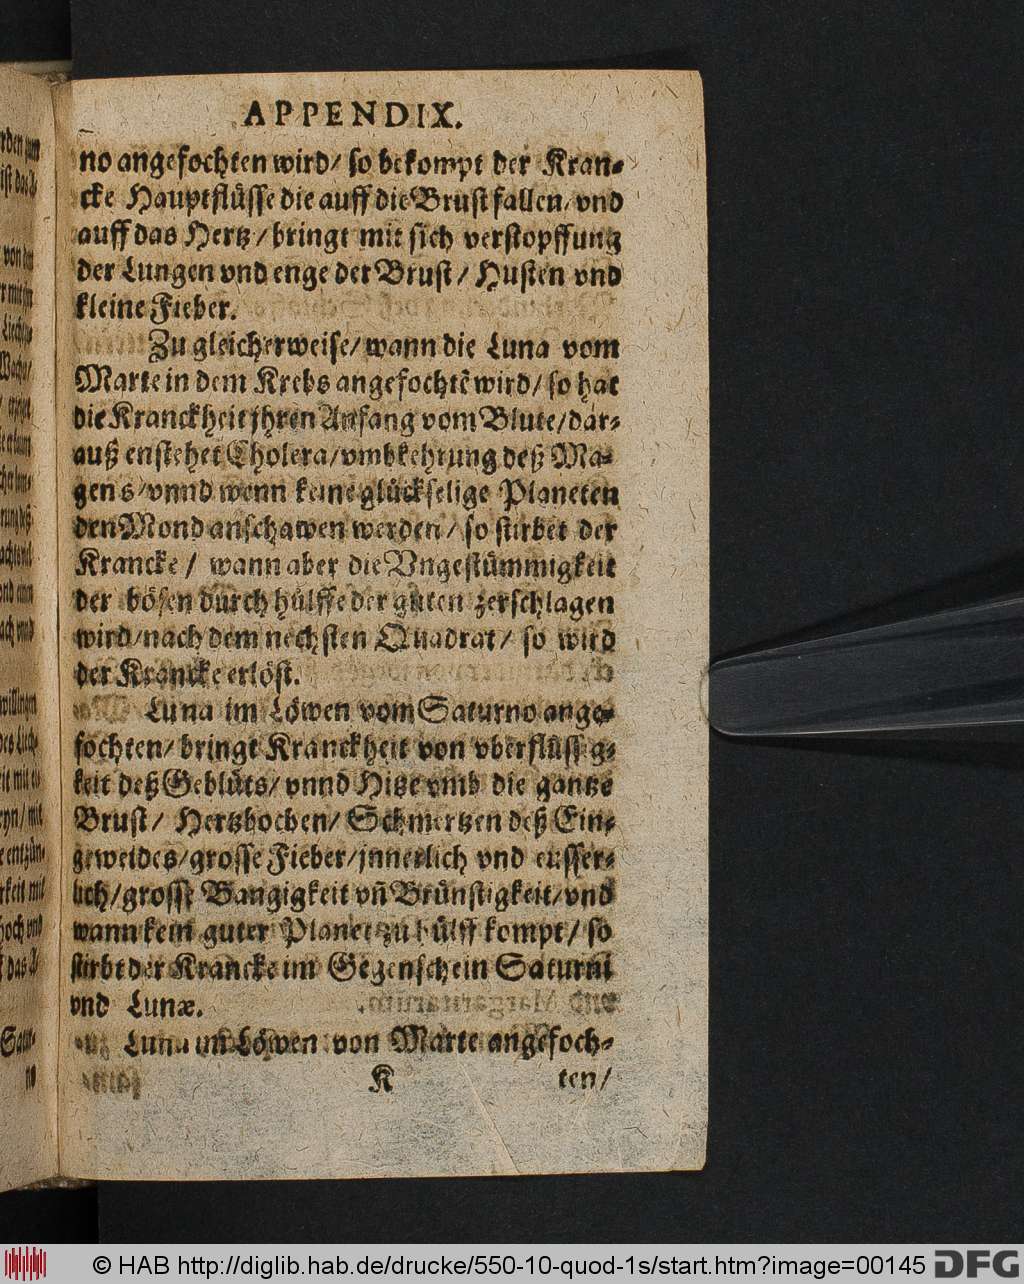 APPENDIX.
no angefochten wird/ so bekompt der Kran-
cke Hauptflüsse die auff die Brust fallen/ vnd
auff das Hertz/ bringt mit sich verstopffung
der Lungen vnd enge der Brust/ Husten vnd
kleine Fieber.
Zu gleicherweise/ wann die Luna vom
Marte in dem Krebs angefochtẽ wird/ so hat
die Kranckheit jhren Anfang vom Blute/ dar-
auß enstehet Cholera/ vmbkehrung deß Ma-
gens/ vnnd wenn keine glückselige Planeten
den Mond anschawen werden/ so stirbet der
Krancke/ wann aber die Vngestümmigkeit
der bösen durch hülffe der guten zerschlagen
wird/ nach dem nechsten Quadrat/ so wird
der Krancke erlöst.
Luna im Löwen vom Saturno ange-
fochten/ bringt Kranckheit von vberflüssig-
keit deß Geblüts/ vnnd Hitze vmb die gantze
Brust/ Hertzbochen/ Schmertzen deß Ein-
geweides/ grosse Fieber/ jnnerlich vnd eusser-
lich/ grosse Bangigkeit vñ Brünstigkeit/ vnd
wann kein guter Planet zu hülff kompt/ so
stirbt der Krancke im Gegenschein Saturni
vnd Lunæ.
Luna im Löwen von Marte angefoch-
K ten/
© HAB http://diglib.hab.de/drucke/550-10-quod-1s/start.htm?image=00145 DFG